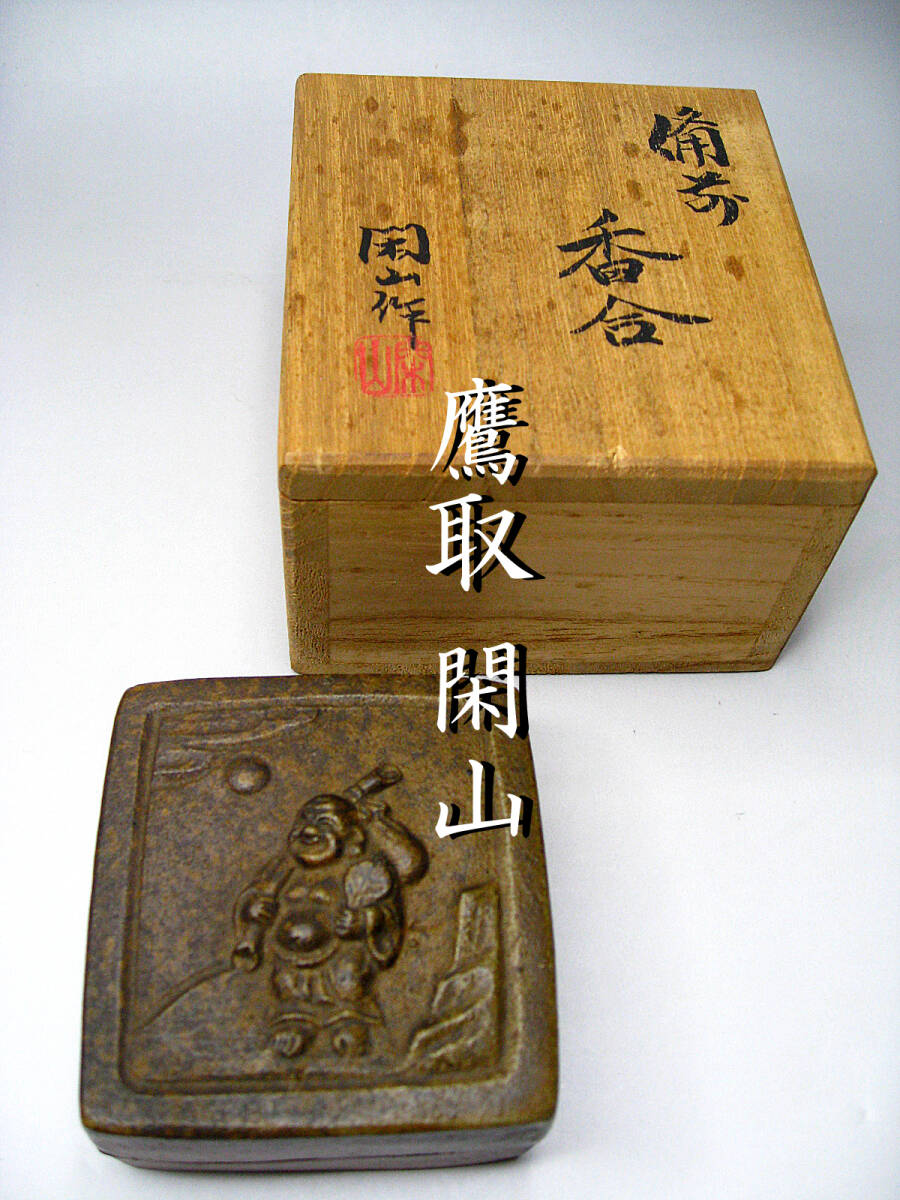 備前
香合
閑山作
閑山
鷹取 閑山